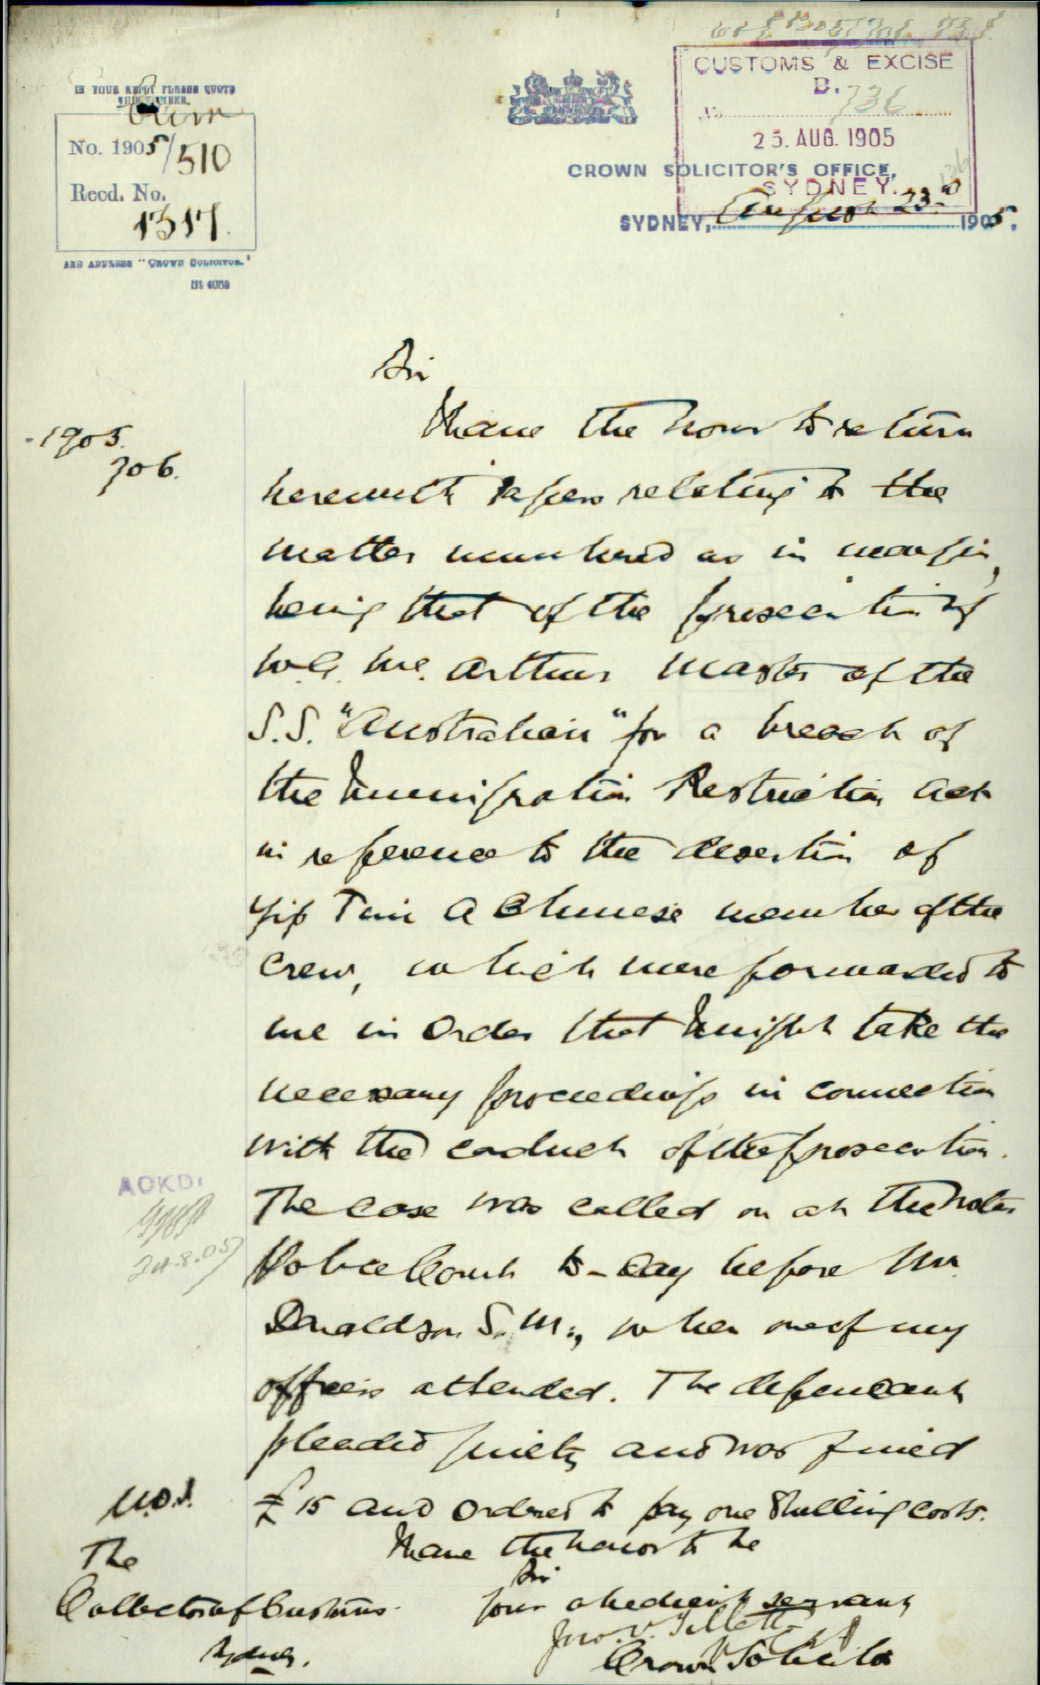 IN YOUR REPLY PLEASE QUOTE
THIS NUMBER.
Crim
No. 1905/510
Recd. No.
1317.
AND ADDRESS "CROWN SOLICITOR."
CUSTOMS & EXCISE
B.
No. 736
25. AUG. 1905
SYDNEY.
CROWN SOLICITOR'S OFFICE,
SYDNEY, August 23rd 1905.
Sir
I have the honor to return
1905.
706.
herewith papers relating to the
matter numbered as in margin,
being that of the prosecution of
W.G. Mc. Arthur Master of the
S.S. "Australian" for a breach of
the Immigration Restriction Act
in reference to the desertion of
Yip Tim a Chinese member of the
crew, which were forwarded to
me in order that I might take the
necessary proceedings in connection
with the conduct of the prosecution.
The case was called on at the Water
Police Court to-day before Mr.
Donaldson S.M., when one of my
officers attended. The defendant
pleaded guilty and was fined
£15 and ordered to pay one shilling costs.
ACKD.
24.8.05
I have the honor to be
Sir
Your obedient servant
Jno. V. Tillett
Crown Solicitor
The
Collector of Customs.
Sydney.